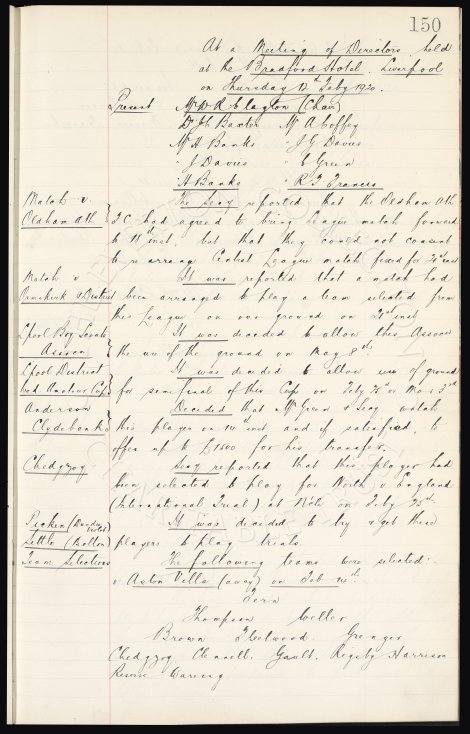 150
At a Meeting of Directors held
at the Bradford Hotel, Liverpool
on Thursday 12th Feby 1920.
Present Mr W R Clayton (Chair)
Dr J C Baxter Mr A Coffey
Mr H Banks " J G Davies
" J Davies " E Green
" A Banks " R T Francis
Match v. Oldham Ath. The Secy reported that the Oldham Ath
F C. had agreed to bring League match forward
to 11th inst. but that they could not consent
to re arrange Central League match fixed for 21st inst
Match v Ormskirk & District It was reported that a match had
been arranged to play a team selected from
this League on our ground on 21st inst
Lpool Boy Scouts Assocn It was decided to allow this Associn
the use of the ground on May 8th
Lpool District Amateur Cup It was decided to allow use of ground
for semi final of this Cup on Feby 25th or March 3rd
Anderson Clydebank Decided that Mr Green & Secy watch
this player on 14th inst and if satisfied, to
offer up to £1500 for his transfer.
Chedgzoy Secy reported that this player had
been selected to play for North v England
(International Trial) at on Feby 25th
Picken (Bandon) Settle (Bolton) It was decided to try & get these
players to play trials
Team Selections The following teams were selected:-
v Aston Villa (away) on Feb 14th.
Fern
Thompson Weller
Brown Fleetwood. Grenyer
Chedgzoy Clennell. Gault. Rigsby Harrison
Reserve Wareing